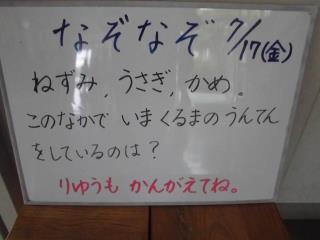 なぞなぞ 7/17(金)
ねずみ、うさぎ、かめ。
このなかで いま くるまの うんてん
をしているのは？
りゆうも かんがえてね。